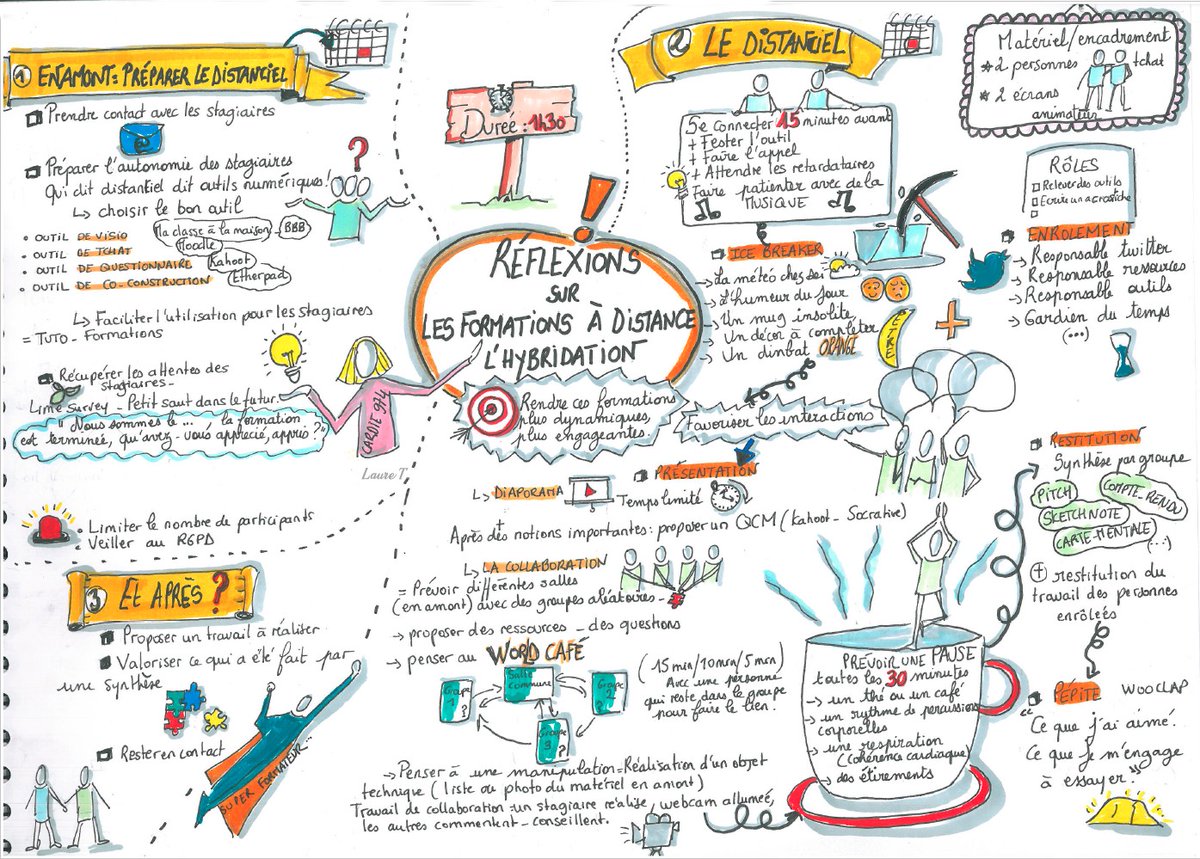 1 EN AMONT : PRÉPARER LE DISTANCIEL
Prendre contact avec les stagiaires
Préparer l'autonomie des stagiaires
Qui dit distantiel dit outils numériques!
↳ choisir le bon outil
• OUTIL DE VISIO
Ma classe à la maison
BBB
• OUTIL DE TCHAT
Moodle
• OUTIL DE QUESTIONNAIRE
Kahoot
• OUTIL DE CO-CONSTRUCTION
Etherpad
↳ Faciliter l'utilisation pour les stagiaires
= TUTO - Formations
Récupérer les attentes des
stagiaires -
Lime Survey - Petit saut dans le futur.
"Nous sommes le ... la formation
est terminée, qu'avez-vous apprécié, appris ?"
CARDIE 974
Laure T
• Limiter le nombre de participants
• Veiller au RGPD
3 Et APRÈS ?
Proposer un travail à réaliser
Valoriser ce qui a été fait par
une synthèse
Rester en contact
SUPER FORMATEUR...
Durée : 1h30
RÉFLEXIONS
SUR
LES FORMATIONS À DISTANCE
L'HYBRIDATION
Rendre ces formations
plus dynamiques,
plus engageantes
2 LE DISTANCIEL
Se connecter 15 minutes avant
+ Tester l'outil
+ Faire l'appel
+ Attendre les retardataires
Faire patienter avec de la
MUSIQUE
ICE BREAKER
→ La météo chez soi
→ L'humeur du jour
→ Un mug insolite
→ Un décor à compléter
→ Un dinbat ORANGE
ÊTRE
+
Favoriser les interactions
Matériel/encadrement
* 2 personnes
tchat
* 2 écrans
animateur
RÔLES
Relever des outils
Ecrire un acrostiche
ENROLEMENT
→ Responsable twitter
→ Responsable ressources
→ Responsable outils
→ Gardien du temps
(...)
PRÉSENTATION
↳ DIAPORAMA
Temps limité
Après des notions importantes : proposer un QCM (Kahoot - Socrative)
↳ LA COLLABORATION
= Prévoir différentes salles
(en amont) avec des groupes aléatoires -
→ proposer des ressources - des questions
→ penser au WORLD CAFÉ
Groupe 1 ?
Salle commune
Groupe 2 ?
Groupe 3 ?
(15 min/10 min/5 min)
Avec une personne
qui reste dans le groupe
pour faire le lien !
→ Penser à une manipulation = Réalisation d'un objet
technique (liste ou photo du matériel en amont)
Travail de collaboration : un stagiaire réalise, webcam allumée,
les autres commentent - conseillent.
PRÉVOIR UNE PAUSE
toutes les 30 minutes
→ un thé ou un café
→ un rythme de percussions
corporelles
→ une respiration
(cohérence cardiaque)
→ des étirements
RESTITUTION
Synthèse par groupe
PITCH
COMPTE-RENDU
SKETCHNOTE
CARTE-MENTALE
(...)
+ restitution du
travail des personnes
enrôlées
PÉPITE WOOCLAP
"Ce que j'ai aimé.
Ce que je m'engage
à essayer."